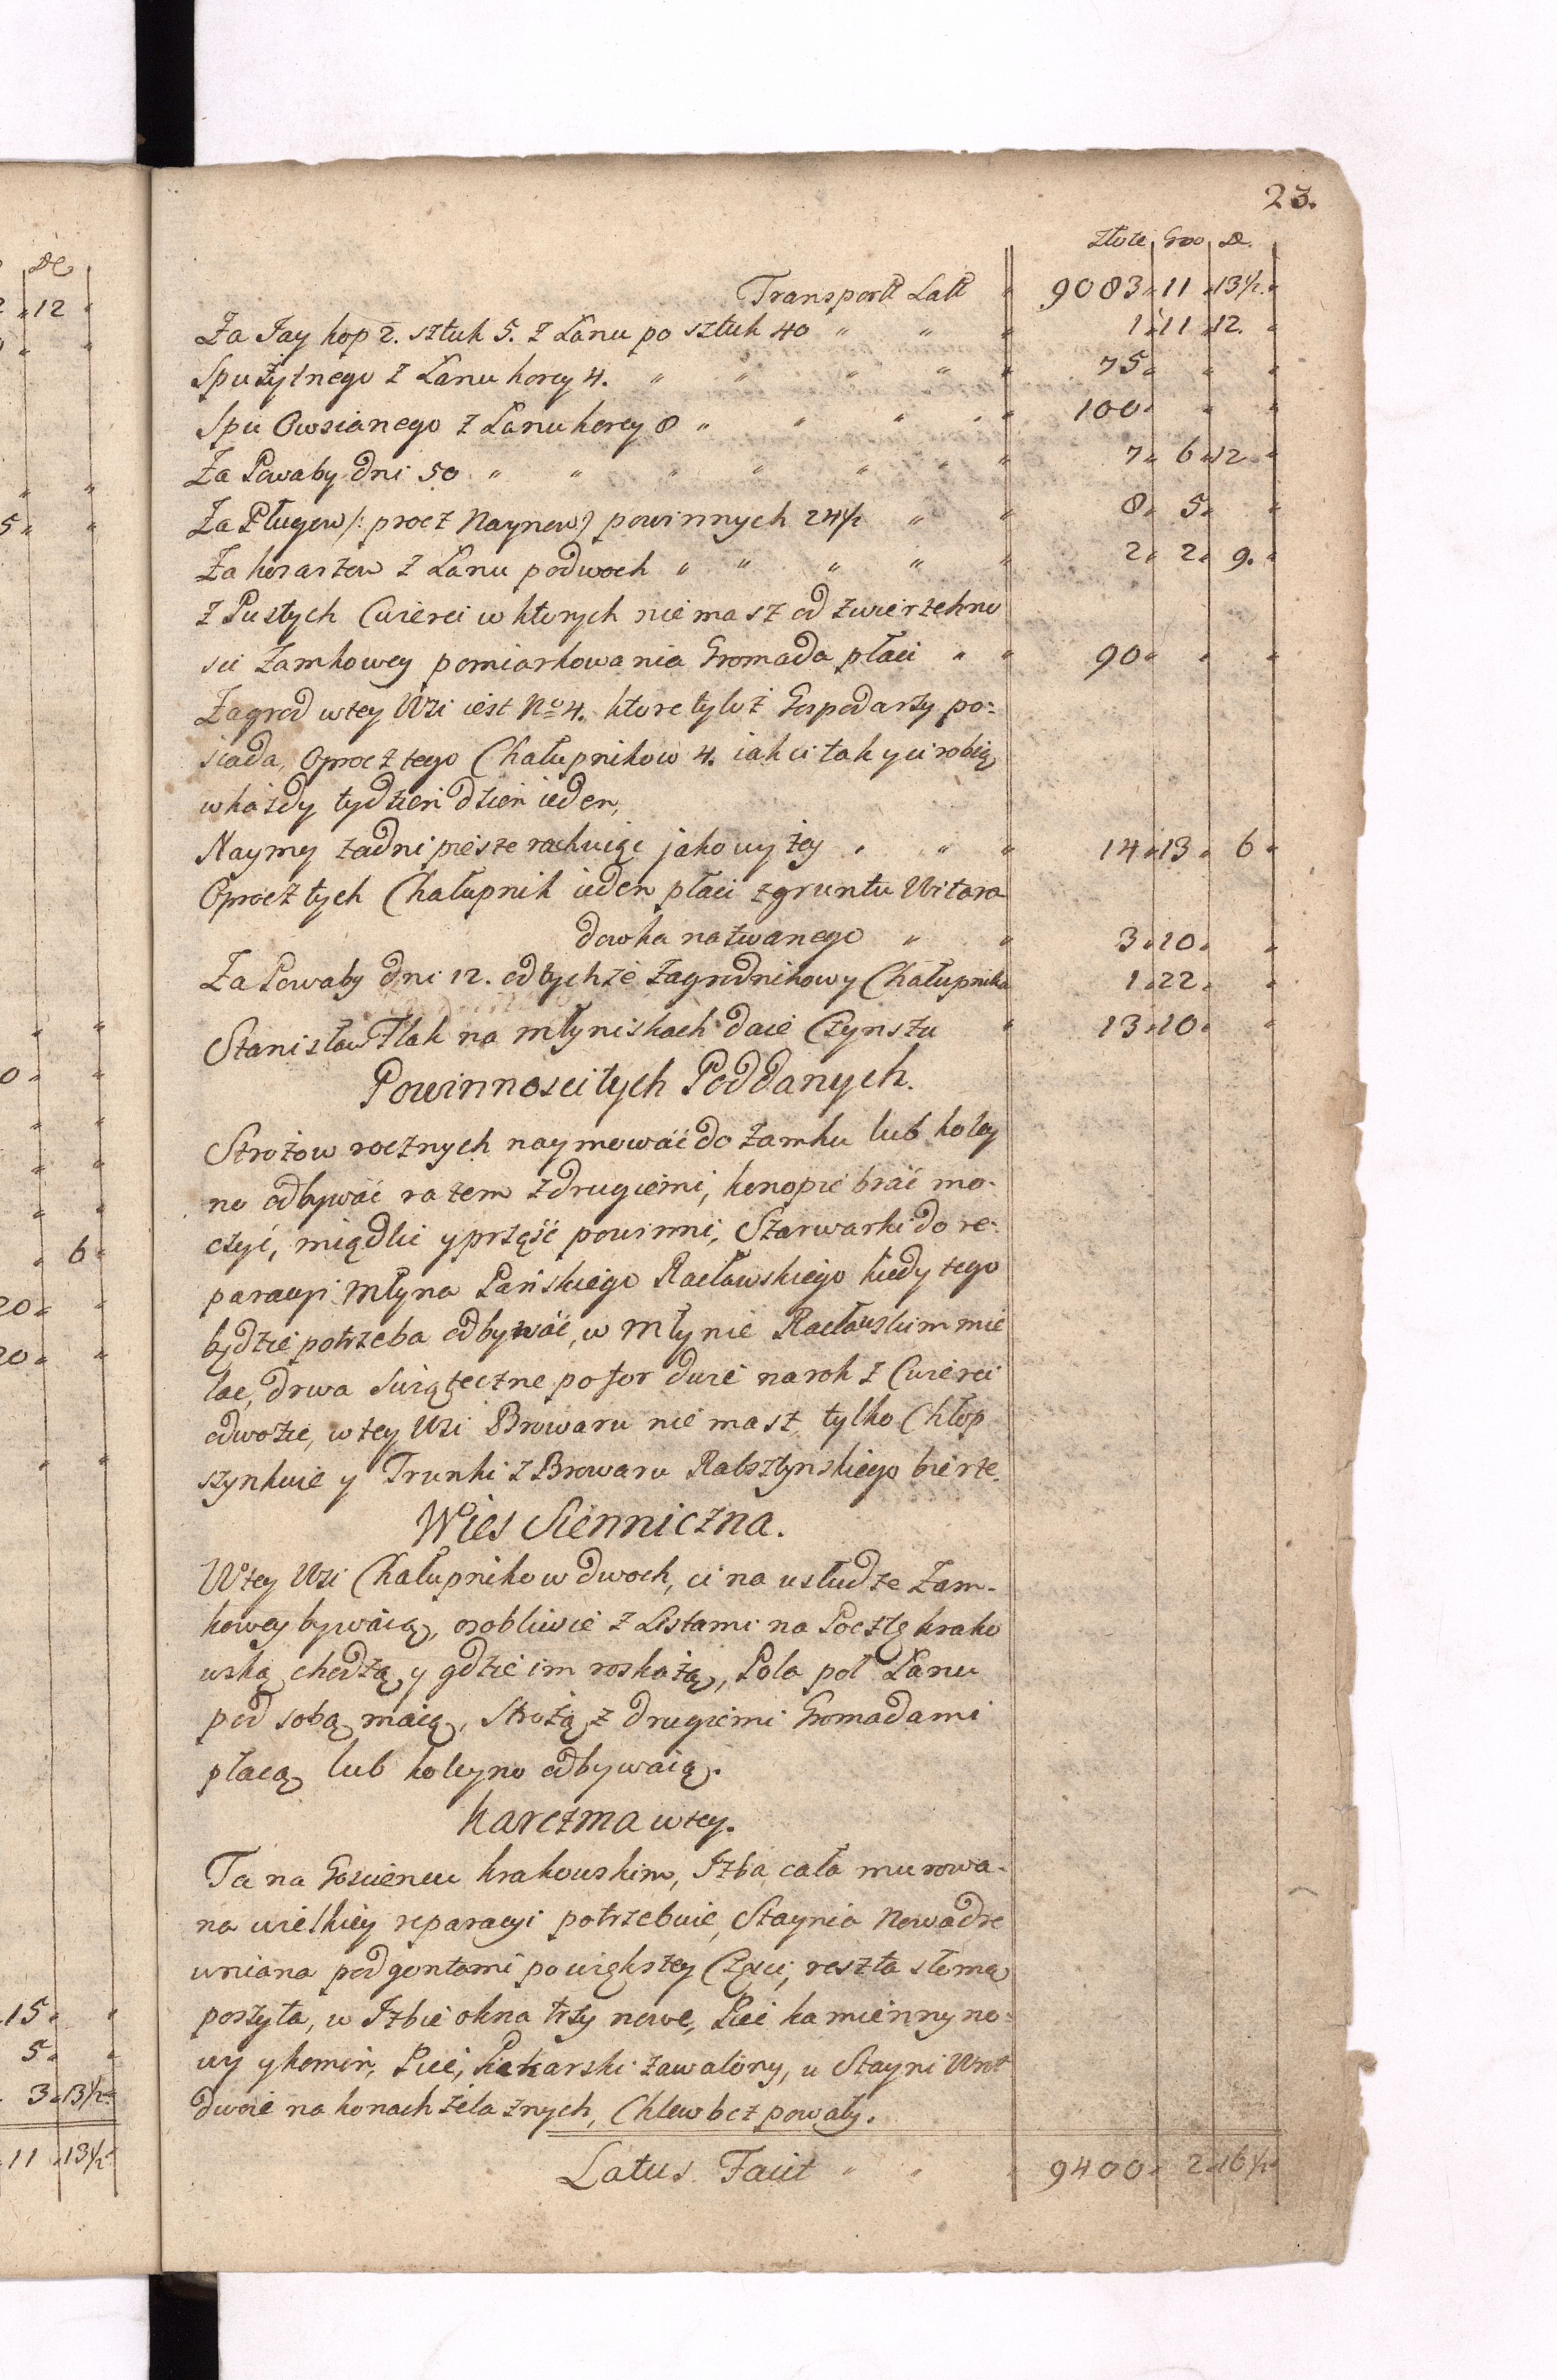 23.
złote Gro d.
Transport Lat 9083 11 13½
Za Jay kop 2. sztuk 5. z Łanu po sztuk 40 " " 1 11 12.
Spu Żytnego z Łanu korcy 4. " " " " 75
Spu Owsianego z Łanu korcy 8 " " " 100
Za Powaby dni 50 " " " " " 7 6 12
Za Pługow /: procz Naymow) powinnych 24½ " 8 5
Za koraszow z Łanu po dwoch " " " " 2 2 9.
z Pustych Cwierci w ktorych nie masz od zwierzchno
sci Zamkowey pomiarkowania Gromada płaci " 90
Zagrod w tey Wsi iest No 4. ktore tyloż Gospodarzy po=
siada, oprocz tego Chałupnikow 4. iak ci tak y ci robią
w każdy tydzień dzień ieden,
Naymy za dni piesze rachuiąc jako wyżey " " 14 13 6
Oprocz tych Chałupnik ieden płaci z gruntu Witora
dowka nazwanego " 3 10
Za Powaby dni 12. od tychże Zagrodnikow y Chałupnika 1 22
Stanisław Tlak na młyniskach daie Czynszu 13 10
Powinnosci tych Poddanych.
Strożow rocznych naymować do Zamku lub koley
no odbywać razem z drugiemi, konopie brać mo-
czyć, miądlić y prząść powinni, Szarwarki do re-
paracyi Młyna Pańskiego Racławskiego kiedy tego
będzie potrzeba odbywać, w Młynie Racławskim mie
lac, drwa Swiąteczne po for dwie na rok z Cwierci
odwozić, w tey Wsi Browaru nie masz tylko Chłop
szynkuie y Trunki z Browaru Rabsztynskiego bierze.
Wies Sienniczna.
W tey Wsi Chałupnikow dwoch, ci na usłudze Zam-
kowey bywaią, osobliwie z Listami na Pocztę krako
wską chodzą y gdzie im roskażą, Pola poł Łanu
pod sobą maią, Strożą z drugiemi Gromadami
płacą lub koleyno odbywaią.
Karczma w tey.
Ta na Goscincu krakowskim, Izba cała murowa-
na wielkiey reparacyi potrzebuie, Staynia Nowa dre
wniana pod gontami po większey Częsci, reszta słomą
poszyta, w Izbie okna trzy nowe, Piec kamienny no-
wy y komin, Piec, Piekarski zawalony, u Stayni Wrot
dwoie na konach żelaznych, Chlew bez powały.
Latus Facit " " 9400 2 16½